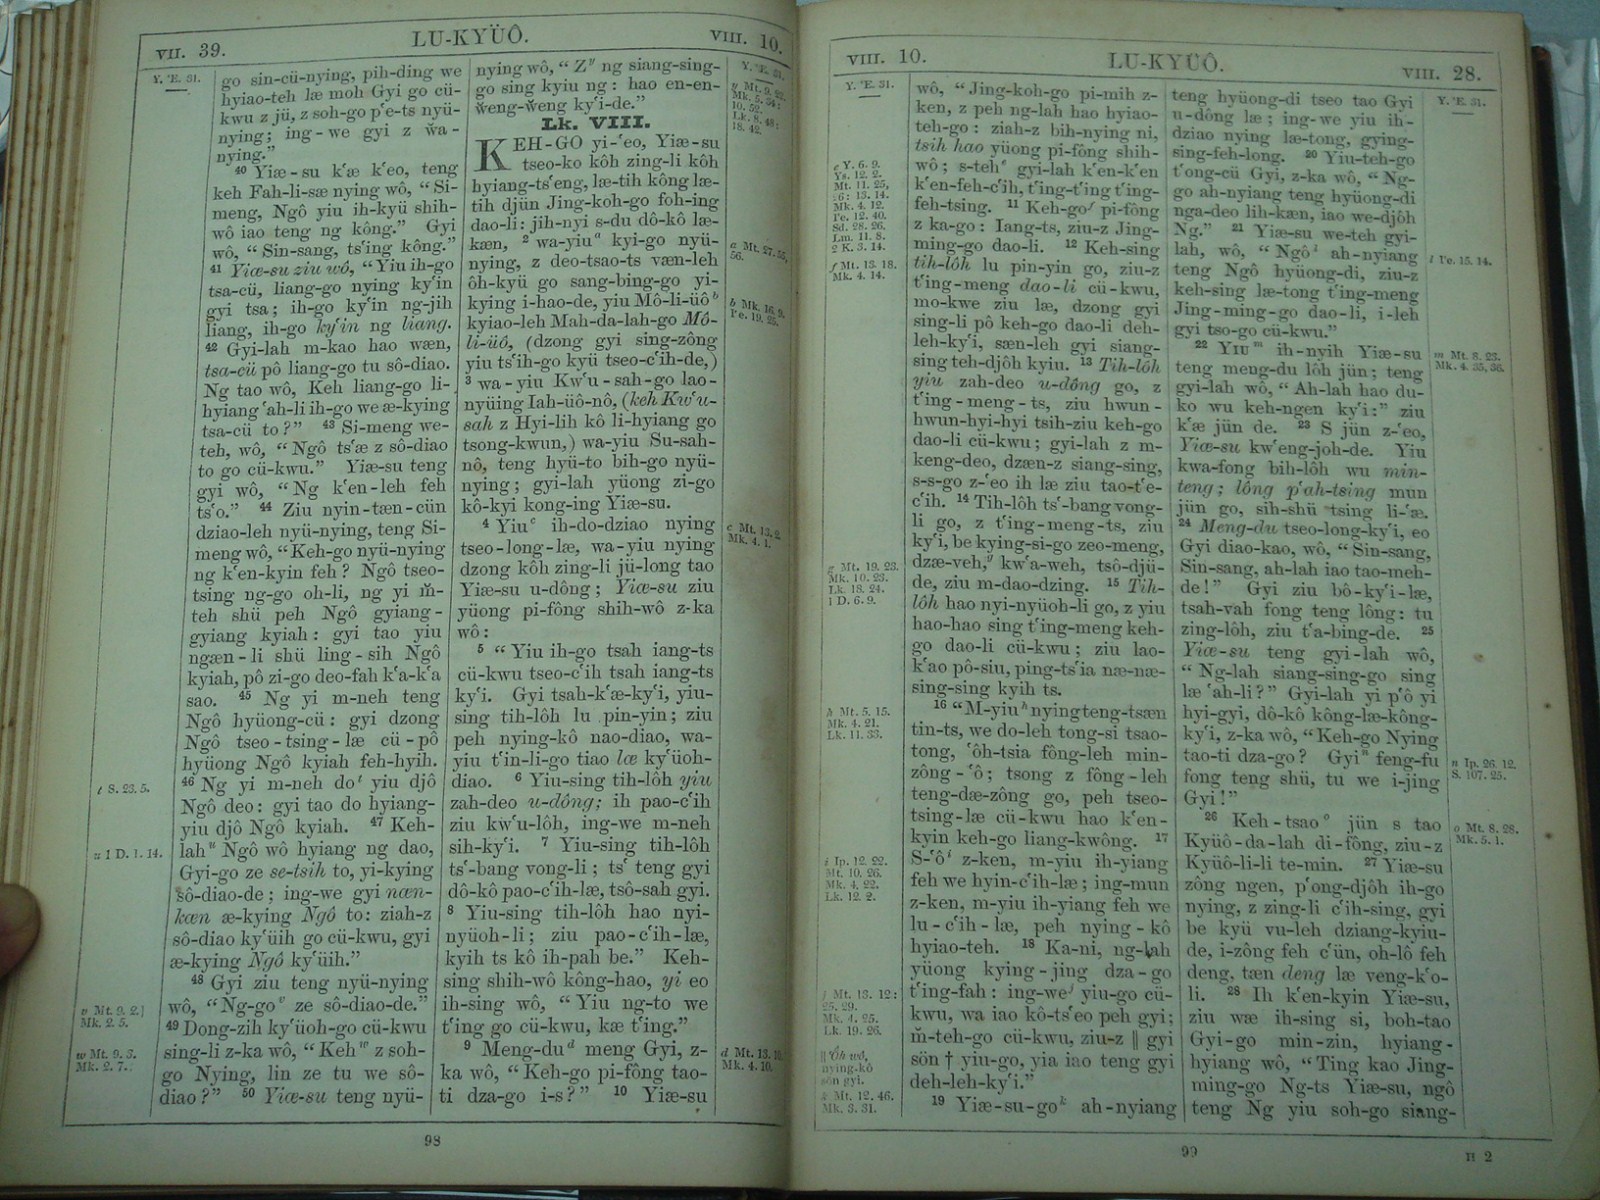 VII. 39.
LU-KYÜÔ.
VIII. 10.
Y. ʻE. 31.
go sin-cü-nying, pih-ding we
hyiao-teh læ moh Gyi go cü-
kwu z jü, z soh-go pʻe-ts nyü-
nying; ing-we gyi z w̌a-
nying.”
40 Yiæ-su kʻæ kʻeo, teng
keh Fah-li-sæ nying wô, “Si-
meng, Ngô yiu ih-kyü shih-
wô iao teng ng kông.” Gyi
wô, “Sin-sang, tsʻing kông.”
41 Yiæ-su ziu wô, “Yiu ih-go
tsa-cü, liang-go nying kyʻin
gyi tsa; ih-go kyʻin ng-jih
liang, ih-go kyʻin ng liang.
42 Gyi-lah m-kao hao wæn,
tsa-cü pô liang-go tu sô-diao.
Ng tao wô, Keh liang-go li-
hyiang ʻah-li ih-go we æ-kying
tsa-cü to?” 43 Si-meng we-
teh, wô, “Ngô tsʻæ z sô-diao
to go cü-kwu.” Yiæ-su teng
gyi wô, “Ng kʻen-leh feh
tsʻo.” 44 Ziu nyin-tæn-cün
dziao-leh nyü-nying, teng Si-
meng wô, “Keh-go nyü-nying
ng kʻen-kyin feh? Ngô tseo-
tsing ng-go oh-li, ng yi m̌-
teh shü peh Ngô gyiang-
gyiang kyiah: gyi tao yiu
ngæn-li shü ling-sih Ngô
kyiah, pô zi-go deo-fah kʻa-kʻa
sao. 45 Ng yi m-neh teng
Ngô hyüong-cü: gyi dzong
Ngô tseo-tsing-læ cü-pô
hyüong Ngô kyiah feh-hyih.
46 Ng yi m-neh do t yiu djô
Ngô deo: gyi tao do hyiang-
yiu djô Ngô kyiah. 47 Keh-
lah u Ngô wô hyiang ng dao,
Gyi-go ze se-tsih to, yi-kying
sô-diao-de; ing-we gyi næn-
kæn æ-kying Ngô to: ziah-z
sô-diao kyʻüih go cü-kwu, gyi
æ-kying Ngô kyʻüih.”
48 Gyi ziu teng nyü-nying
wô, “Ng-go v ze sô-diao-de.”
49 Dong-zih kyʻüoh-go cü-kwu
sing-li z-ka wô, “Keh w z soh-
go Nying, lin ze tu we sô-
diao?” 50 Yiæ-su teng nyü-
t S. 23. 5.
u 1 D. 1. 14.
v Mt. 9. 2.
Mk. 2. 5.
w Mt. 9. 3.
Mk. 2. 7.
nying wô, “Z y ng siang-sing-
go sing kyiu ng: hao en-en-
w̌eng-w̌eng kyʻi-de.”
Lk. VIII.
KEH-GO yi-ʻeo, Yiæ-su
tseo-ko kôh zing-li kôh
hyiang-tsʻeng, læ-tih kông læ-
tih djün Jing-koh-go foh-ing
dao-li: jih-nyi s-du dô-kô læ-
kæn, 2 wa-yiu a kyi-go nyü-
nying, z deo-tsao-ts væn-leh
ôh-kyü go sang-bing-go yi-
kying i-hao-de, yiu Mô-li-üô b
kyiao-leh Mah-da-lah-go Mô-
li-üô, (dzong gyi sing-zông
yiu tsʻih-go kyü tseo-cʻih-de,)
3 wa-yiu Kwʻu-sah-go lao-
nyüing Iah-üô-nô, (keh Kwʻu-
sah z Hyi-lih kô li-hyiang go
tsong-kwun,) wa-yiu Su-sah-
nô, teng hyü-to bih-go nyü-
nying; gyi-lah yüong zi-go
kô-kyi kong-ing Yiæ-su.
4 Yiu c ih-do-dziao nying
tseo-long-læ, wa-yiu nying
dzong kôh zing-li jü-long tao
Yiæ-su u-dông; Yiæ-su ziu
yüong pi-fông shih-wô z-ka
wô:
5 “Yiu ih-go tsah iang-ts
cü-kwu tseo-cʻih tsah iang-ts
kyʻi. Gyi tsah-kʻæ-kyʻi, yiu-
sing tih-lôh lu pin-yin; ziu
peh nying-kô nao-diao, wa-
yiu tʻin-li-go tiao læ kyʻüoh-
diao. 6 Yiu-sing tih-lôh yiu
zah-deo u-dông; ih pao-cʻih
ziu kwʻu-lôh, ing-we m-neh
sih-kyʻi. 7 Yiu-sing tih-lôh
tsʻ-bang vong-li; tsʻ teng gyi
dô-kô pao-cʻih-læ, tsô-sah gyi.
8 Yiu-sing tih-lôh hao nyi-
nyüoh-li; ziu pao-cʻih-læ,
kyih ts kô ih-pah be.” Keh-
sing shih-wô kông-hao, yi eo
ih-sing wô, “Yiu ng-to we
tʻing go cü-kwu, kæ tʻing.”
9 Meng-du d meng Gyi, z-
ka wô, “Keh-go pi-fông tao-
ti dza-go i-s?” 10 Yiæ-su
Y. ʻE. 31.
y Mt. 9. 22.
Mk. 5. 34:
10. 52.
Lk. 8. 48:
18. 42.
a Mt. 27. 55,
56.
b Mk. 16. 9.
c Mt. 13. 2.
Mk. 4. 1.
d Mt. 13. 10.
Mk. 4. 10.
98
VIII. 10.
LU-KYÜÔ.
VIII. 28.
Y. ʻE. 31.
e Y. 6. 9.
Mt. 11. 25,
Mk. 4. 12.
Sd. 28. 26.
Lm. 11. 8.
2 K. 3. 14.
f Mt. 13. 18.
Mk. 4. 14.
g Mt. 19. 23.
Mk. 10. 23.
Lk. 18. 24.
1 D. 6. 9.
h Mt. 5. 15.
Mk. 4. 21.
Lk. 11. 33.
i Ip. 12. 22.
Mt. 10. 26.
Mk. 4. 22.
Lk. 12. 2.
j Mt. 13. 12:
25. 29.
Mk. 4. 25.
Lk. 19. 26.
‖ Ôh wô,
nying-kô
sön gyi.
k Mt. 12. 46.
Mk. 3. 31.
wô, “Jing-koh-go pi-mih z-
ken, z peh ng-lah hao hyiao-
teh-go: ziah-z bih-nying ni,
tsih hao yüong pi-fông shih-
wô; s-teh e gyi-lah kʻen-kʻen
kʻen-feh-cʻih, tʻing-tʻing tʻing-
feh-tsing. 11 Keh-go f pi-fông
z ka-go: Iang-ts, ziu-z Jing-
ming-go dao-li. 12 Keh-sing
tih-lôh lu pin-yin go, ziu-z
tʻing-meng dao-li cü-kwu,
mo-kwe ziu læ, dzong gyi
sing-li pô keh-go dao-li deh-
leh-kyʻi, sæn-leh gyi siang-
sing teh-djôh kyiu. 13 Tih-lôh
yiu zah-deo u-dông go, z
tʻing-meng-ts, ziu hwun-
hwun-hyi-hyi tsih-ziu keh-go
dao-li cü-kwu; gyi-lah z m-
keng-deo, dzæn-z siang-sing,
s-s-go z-ʻeo ih læ ziu tao-tʻe-
cʻih. 14 Tih-lôh tsʻ-bang vong-
li go, z tʻing-meng-ts, ziu
kyʻi, be kying-si-go zeo-meng,
dzæ-veh, g kwʻa-weh, tsô-djü-
de, ziu m-dao-dzing. 15 Tih-
lôh hao nyi-nyüoh-li go, z yiu
hao-hao sing tʻing-meng keh-
go dao-li cü-kwu; ziu lao-
kʻao pô-siu, ping-tsʻia næ-næ-
sing-sing kyih ts.
16 “M-yiu h nying teng-tsæn
tin-ts, we do-leh tong-si tsao-
tong, ʻôh-tsia fông-leh min-
zông-ʻô; tsong z fông-leh
teng-dæ-zông go, peh tseo-
tsing-læ cü-kwu hao kʻen-
kyin keh-go liang-kwông. 17
S-ʻô i z-ken, m-yiu ih-yiang
feh we hyin-cʻih-læ; ing-mun
z-ken, m-yiu ih-yiang feh we
lu-cʻih-læ, peh nying-kô
hyiao-teh. 18 Ka-ni, ng-lah
yüong kying-jing dza-go
tʻing-fah: ing-we j yiu-go cü-
kwu, wa iao kô-tsʻeo peh gyi;
m̌-teh-go cü-kwu, ziu-z ‖ gyi
sön † yiu-go, yia iao teng gyi
deh-leh-kyʻi.”
19 Yiæ-su-go k ah-nyiang
teng hyüong-di tseo tao Gyi
u-dông læ; ing-we yiu ih-
dziao nying læ-tong, gying-
sing-feh-long. 20 Yiu-teh-go
tʻong-cü Gyi, z-ka wô, “Ng-
go ah-nyiang teng hyüong-di
nga-deo lih-kæn, iao we-djôh
Ng.” 21 Yiæ-su we-teh gyi-
lah, wô, “Ngô l ah-nyiang
teng Ngô hyüong-di, ziu-z
keh-sing læ-tong tʻing-meng
Jing-ming-go dao-li, i-leh
gyi tso-go cü-kwu.”
22 YIU m ih-nyih Yiæ-su
teng meng-du lôh jün; teng
gyi-lah wô, “Ah-lah hao du-
ko wu keh-ngen kyʻi:” ziu
kʻæ jün de. 23 S jün z-ʻeo,
Yiæ-su kwʻeng-joh-de. Yiu
kwa-fong bih-lôh wu min-
teng; lông pʻah-tsing mun
jün go, sih-shü tsing li-ʻæ.
24 Meng-du tseo-long-kyʻi, eo
Gyi diao-kao, wô, “Sin-sang,
Sin-sang, ah-lah iao tao-meh-
de!” Gyi ziu bô-kyʻi-læ,
tsah-vah fong teng lông: tu
zing-lôh, ziu tʻa-bing-de. 25
Yiæ-su teng gyi-lah wô,
“Ng-lah siang-sing-go sing
læ ʻah-li?” Gyi-lah yi pʻô yi
hyi-gyi, dô-kô kông-læ-kông-
kyʻi, z-ka wô, “Keh-go Nying
tao-ti dza-go? Gyi n feng-fu
fong teng shü, tu we i-jing
Gyi!”
26 Keh-tsao o jün s tao
Kyüô-da-lah di-fông, ziu-z
Kyüô-li-li te-min. 27 Yiæ-su
zông ngen, pʻong-djôh ih-go
nying, z zing-li cʻih-sing, gyi
be kyü vu-leh dziang-kyiu-
de, i-zông feh cʻün, oh-lô feh
deng, tæn deng læ veng-kʻo-
li. 28 Ih kʻen-kyin Yiæ-su,
ziu wæ ih-sing si, boh-tao
Gyi-go min-zin, hyiang-
hyiang wô, “Ting kao Jing-
ming-go Ng-ts Yiæ-su, ngô
teng Ng yiu soh-go siang-
Y. ʻE. 31.
m Mt. 8. 23.
Mk. 4. 35, 36.
n Ip. 26. 12.
S. 107. 25.
o Mt. 8. 28.
Mk. 5. 1.
99
H 2